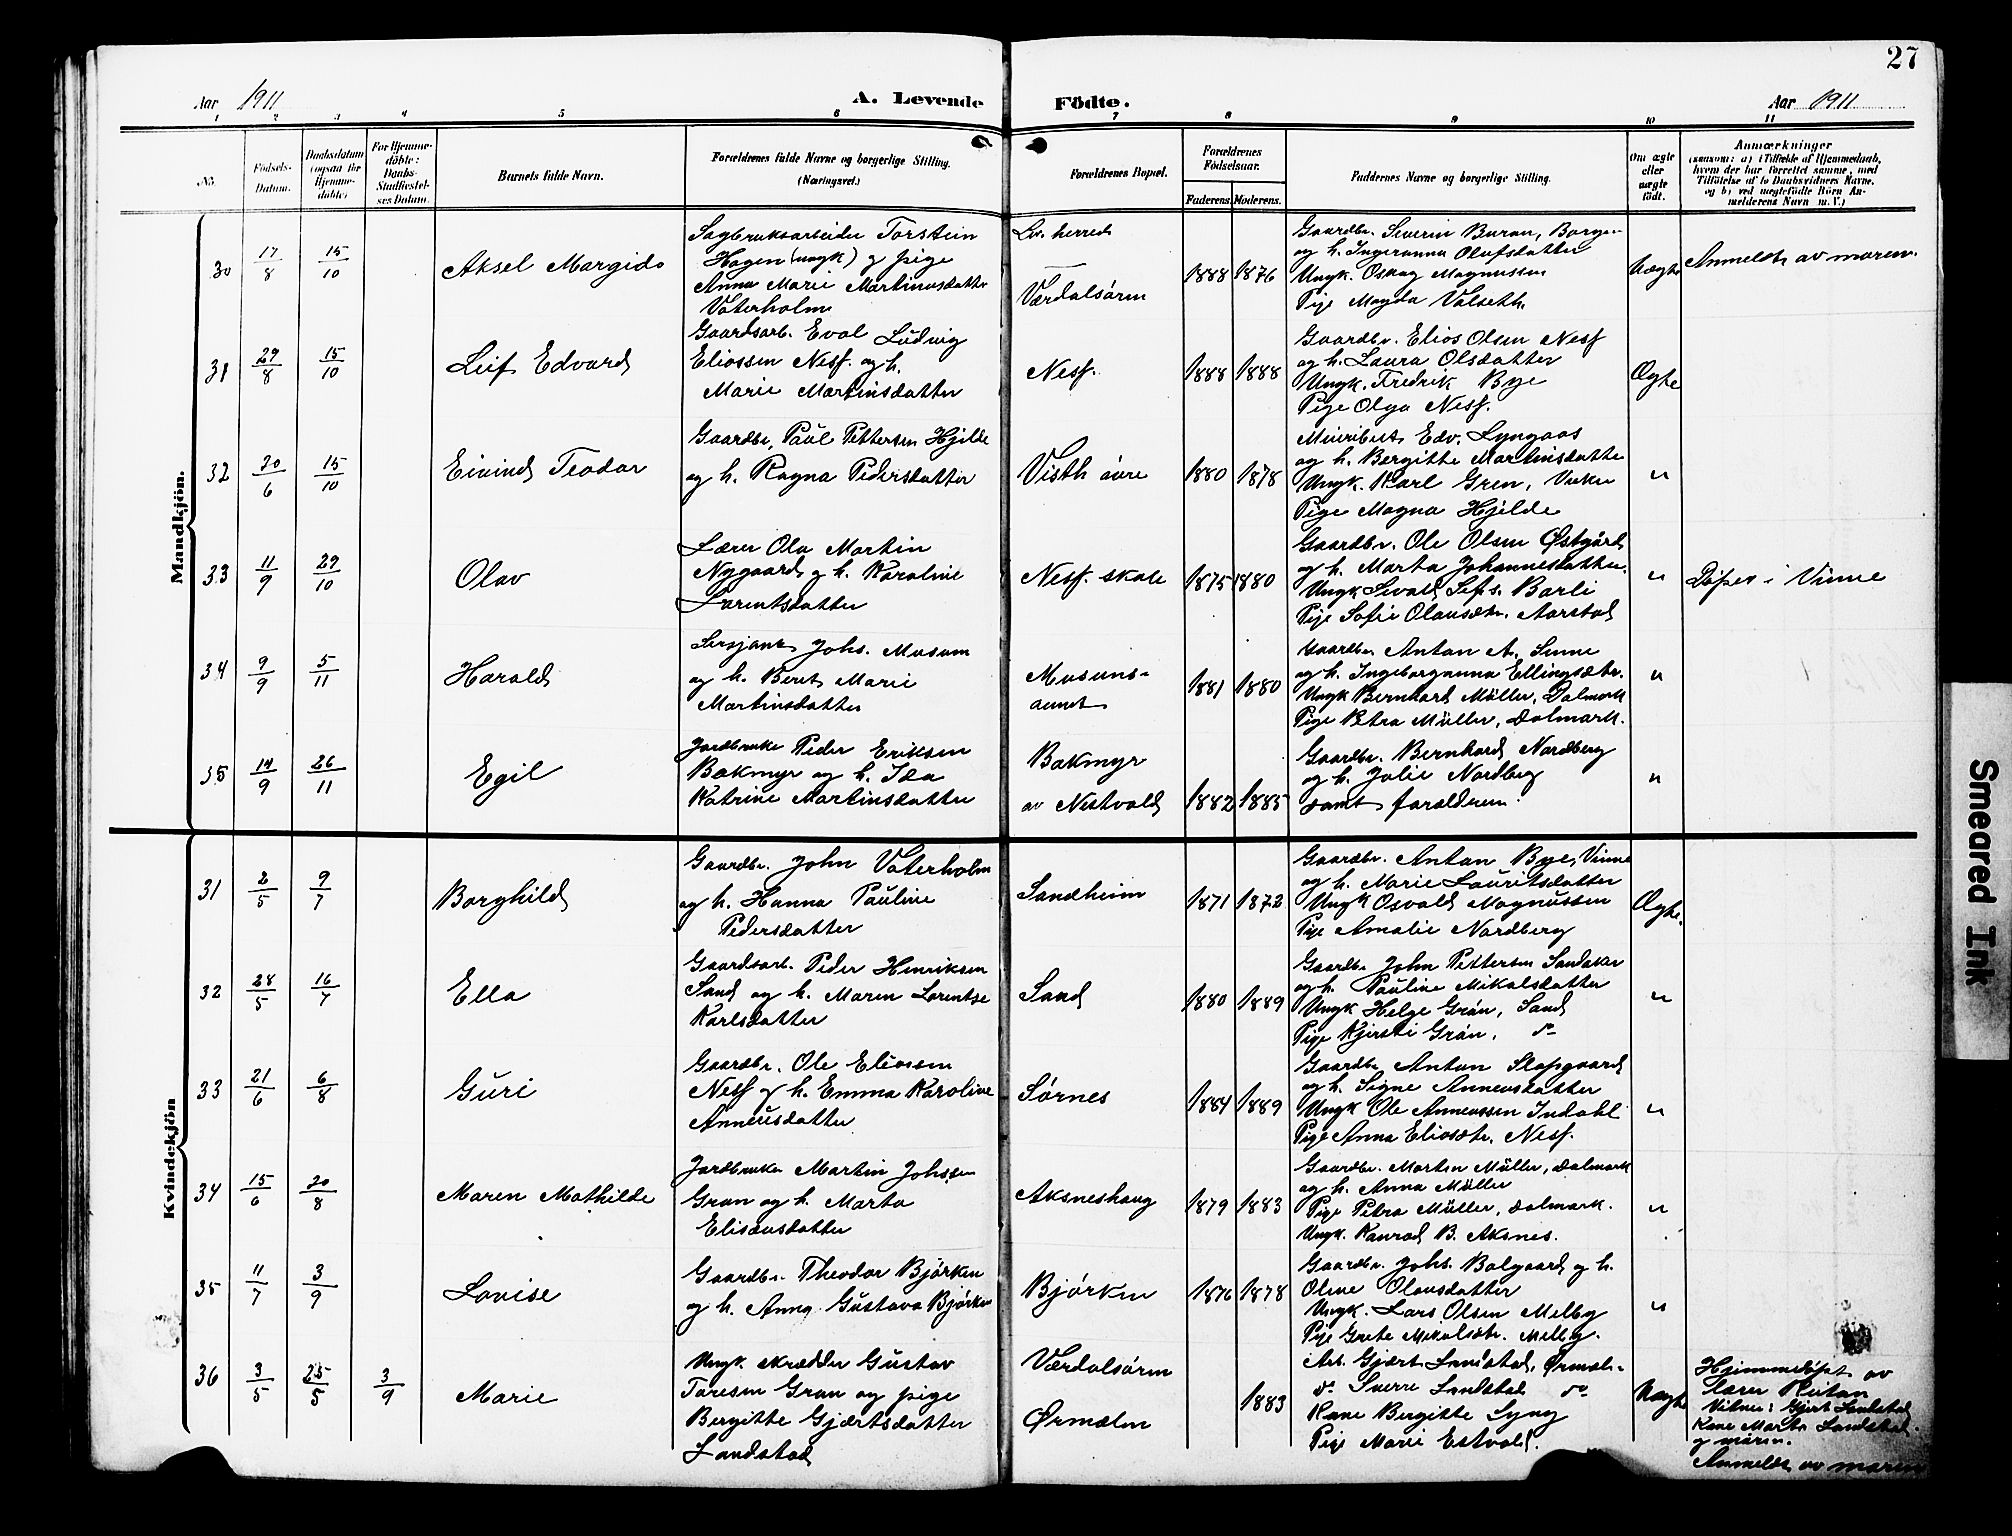 27
Aar 1911
A. Levende Födte.
Aar 1911
1 2 3 4 5 6 7 8 9 10 11
No.
Födsels-Datum.
Daabsdatum (ogsaa for Hjemmedøbte)
For Hjemmedöbte: Daabs-Stadfæstelses Datum.
Barnets fulde Navn.
Forældrenes fulde Navne og borgerlige Stilling. (Næringsvei.)
Forældrenes Bopæl.
Forældrenes Födselsaar.
Faderens. Moderens.
Faddernes Navne og borgerlige Stilling.
Om ægte eller uægte födt.
Anmærkninger
(saasom: a) i Tilfælde af Hjemmedaab, hvem der har forrettet samme, med Tilföielse af to Daabsvidners Navne, og b) ved uægtefödte Börn Anmelderens Navn m. V.)
Mandkjön.
30 17/8 15/10 Aksel Margido
Sagbruksarbeider Torstein
Hagen (ungk) og pige
Anna Marie Martinusdatter
Vaterholm
Lev. herred
Værdalsøren
1888 1876
Gaardbr. Severin Buran,
og h. Ingeranna Olufsdatter
Ungk. Oskar Magnussen
Pige Magda Valseth
Uægte
Anmeldt av moren.
31 29/8 15/10 Leif Edvard
Gaardsarb. Eval Ludvig
Eliassen Ness. og h.
Marie Martinsdatter
Ness.
1888 1888
Gaardbr. Elias Olsen Ness
og h. Laura Olsdatter
Ungk. Fredrik Bye
Pige Olga Ness.
Ægte
32 20/6 15/10 Eivind Teodor
Gaardbr. Paul Pettersen Hjelde
og h. Ragna Pedersdatter
Visth övre
1880 1878
Edv. Lyngaas
og h. Bergitte Martinsdatter
Ungk. Karl Gren, Vuku
Pige Magna Hjelde
"
33 11/9 29/10 Olav
Lærer Ola Martin
Nygaard og h. Karoline
Lorentsdatter
Ness. skole
1875 1880
Gaardbr. Ole Olsen Østgård
og h. Marta Johannesdatter.
Ungk Sivald Barli
Pige Sofie Olausdtr. Aarstad
"
Döpt i Vinne
34 9/9 5/11 Harald
Sersjant Johs. Musum
og h. Beret Marie
Martinsdatter
Musums-
aunet
1881 1880
Gaardbr Anton A. Sunne
og h. Ingeborganna Ellingsdtr.
Ungk Bernhard Müller, Dalmark
Pige Petra Müller, Dalmark.
"
35 14/9 26/11 Egil
Jordbruker Peder Eriksen
Bakmyr og h. Ida
Katrine Martinsdatter
Bakmyr
av Nestvold
1882 1885
Gaardbr. Bernhard Nordberg
og h. Jolie Nordberg
samt forældrene.
"
Kvindekjön
31 2/5 9/7 Borghild
Gaardbr. John Vaterholm
og h. Hanna Pauline
Pedersdatter
Sandheim
1871 1872
Gaardbr. Anton Bye, Vinne
og h. Marie Lauritsdatter
Ungk Osvald Magnussen
Pige Amalie Nordberg
Ægte.
32 28/5 16/7 Ella
Gaardsarb. Peder Henriksen
Sand og h. Maren Lorentse
Karlsdatter
Sand
1880 1889
Gaardbr John Pettersen Sandaker
og h. Pauline Mikalsdatter
Ungk Helge Grön, Sand
Pige Kjersti Grön, do
"
33 21/6 6/8 Guri
Gaardbr. Ole Eliassen
Ness og h. Emma Karoline
Anneusdatter
Sørnes
1884 1889
Gaardbr Anton Stapgaard
og h. Signe Anneusdatter
Ungk Ole Anneussen Indahl
Pige Anna Eliasdtr. Ness.
"
34 15/6 20/8 Maren Mathilde
Jordbruker Martin Johssen
Gran og h. Marta
Eliseusdatter
Aksneshaug
1879 1883
Gaardbr. Morten Müller, Dalmark
og h. Anna Müller
Pige Petra Müller, Dalmark.
Ungk. Konrad B. Aksnes.
"
35 11/7 3/9 Lovise
Gaardbr. Theodor Björken
og h. Anna Gustava Björken
Björken
1876 1878
Gaardbr. Johs. Balgaard og h.
Oline Olausdatter
Ungk. Lars Olsen Melby
Pige Grete Mikalsdtr. Melby.
"
36 3/5 25/5 3/9 Marie
Ungk. skrædder Gustav
Toresen Gran og pige
Bergitte Gjærtsdatter
Landstad
Værdalsøren
Ørmelen
1883
Arb. Gjært Landstad, Ørmelen
do Sverre Landstad do
Kone Bergitte Lyng
Pige Marie Estvald.
Uægte
Hjemmedöpt av
lærer Reitan
Vitner: Gjært Landstad
Kone Marta Landstad
og moren.
Anmeldt av moren
Smeared Ink